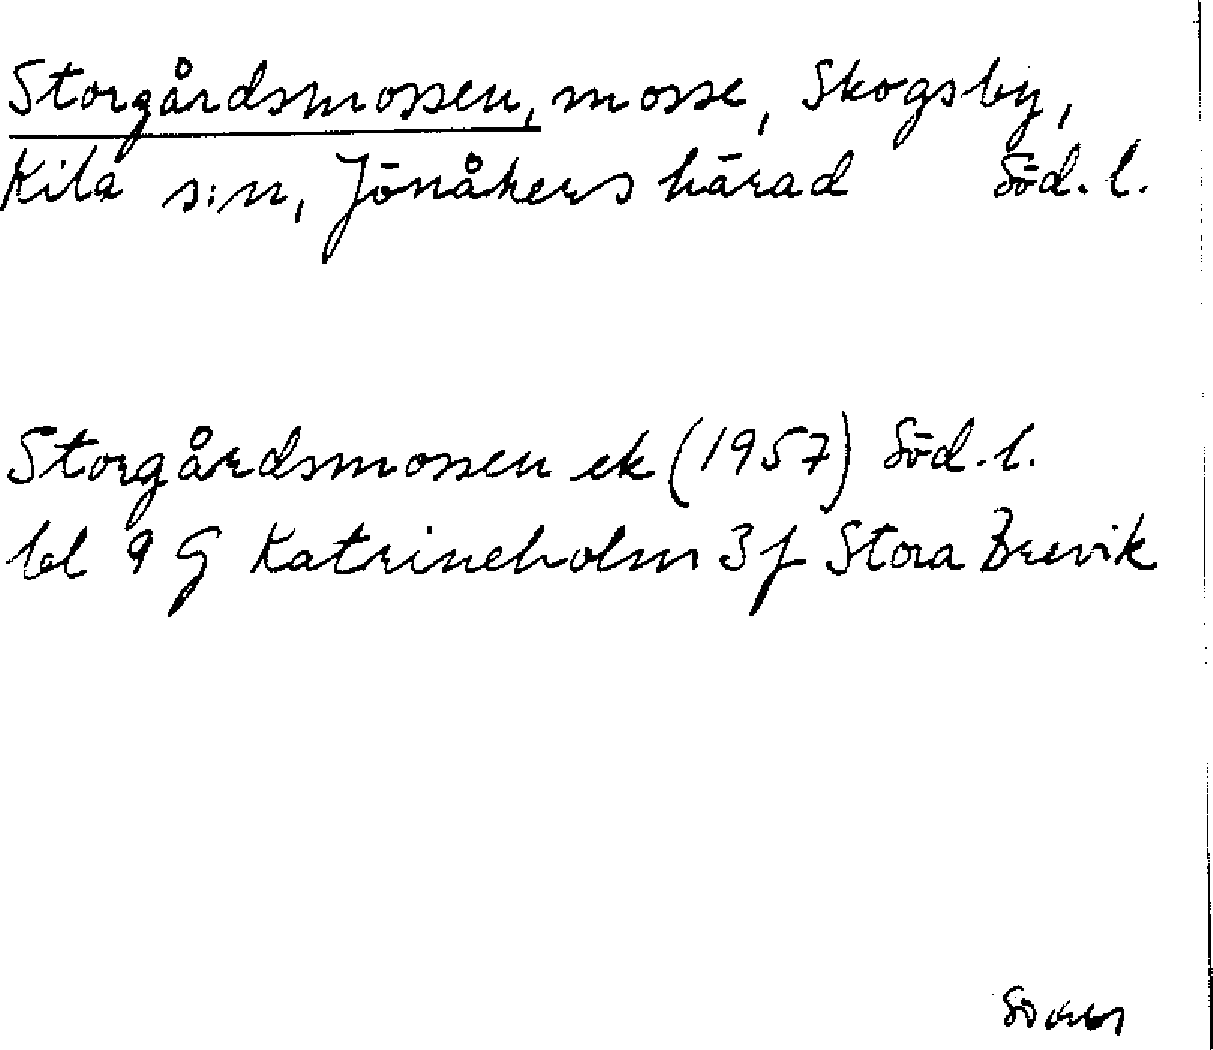 Storgårdsmossen, mosse, Skogsby,
Kila s:n, Jönåkers härad Söd. l.
Storgårdsmossen ek (1957) Söd. l.
bl 9 G Katrineholm 3 f Stora Brevik